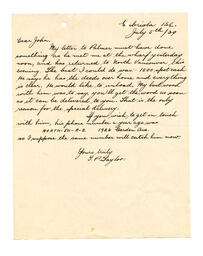 July 5th/29
Dear John,
My letter to Palmer must have done
something as he met me at the wharf yesterday
noon, and has returned to North Vancouver this
evening. The boat I could do was 1500 spot cash
He says he has the deeds over home and everything is
clear. He would like to unload. My last word
with him was to say you'll get the word as soon
as it can be delivered to you. That is the only
reason for the special delivery.
If you wish to get in touch
with him, his phone number a year ago was
1926
so I suppose the same number will catch him now.
Yours truly
Taylor